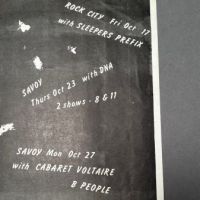 ROCK CITY Fri Oct 17
with SLEEPERS PREFIX
SAVOY
Thurs Oct 23 with DNA
2 shows - 8 & 11
SAVOY Mon Oct 27
with CABARET VOLTAIRE
B PEOPLE